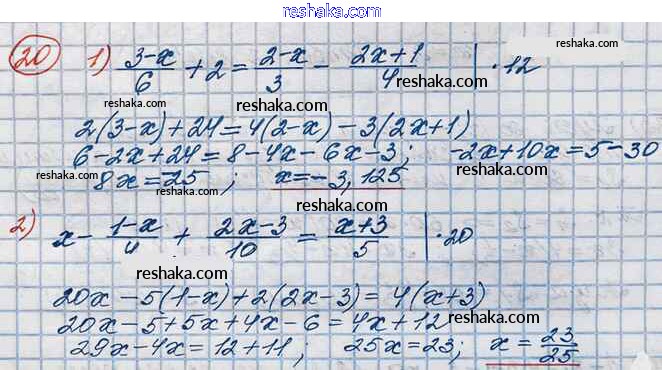 reshaka.com
20 1) (3-x)/6 + 2 = (2-x)/3 - (2x+1)/4 | ·12
reshaka.com
reshaka.com
reshaka.com
2(3-x)+24=4(2-x)-3(2x+1)
reshaka.com
6-2x+24=8-4x-6x-3; -2x+10x=5-30
reshaka.com
reshaka.com
8x=-25; x=-3,125
reshaka.com
2) x - (1-x)/4 + (2x-3)/10 = (x+3)/5 | ·20
reshaka.com
reshaka.com
20x-5(1-x)+2(2x-3)=4(x+3)
reshaka.com
20x-5+5x+4x-6=4x+12
reshaka.com
29x-4x=12+11; 25x=23; x=23/25
reshaka.com